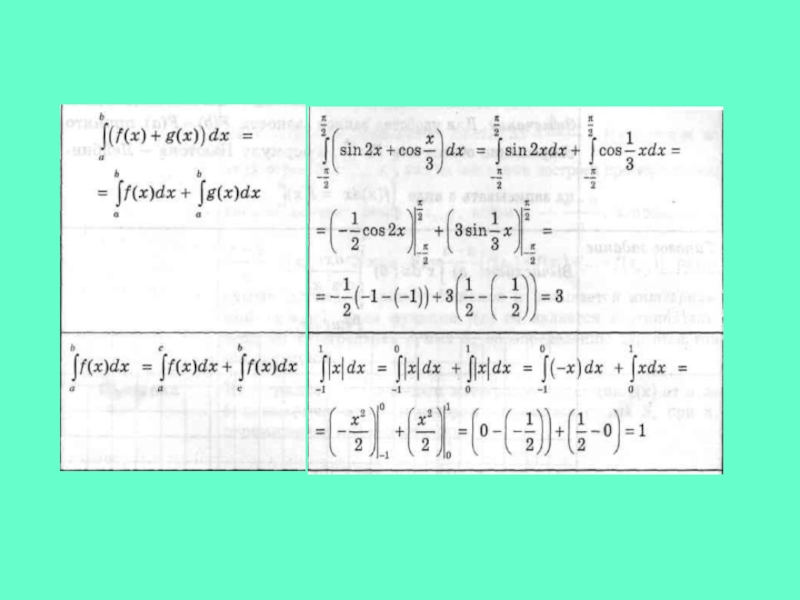 ∫_a^b (f(x) + g(x)) dx =
= ∫_a^b f(x)dx + ∫_a^b g(x)dx
∫_{-π/2}^{π/2} (sin 2x + cos x/3) dx = ∫_{-π/2}^{π/2} sin 2xdx + ∫_{-π/2}^{π/2} cos 1/3 xdx =
= (-1/2 cos 2x)|_{-π/2}^{π/2} + (3 sin 1/3 x)|_{-π/2}^{π/2} =
= -1/2 (-1 - (-1)) + 3(1/2 - (-1/2)) = 3
∫_a^b f(x)dx = ∫_a^c f(x)dx + ∫_c^b f(x)dx
∫_{-1}^1 |x| dx = ∫_{-1}^0 |x| dx + ∫_0^1 |x| dx = ∫_{-1}^0 (-x) dx + ∫_0^1 xdx =
= (-x²/2)|_{-1}^0 + (x²/2)|_0^1 = (0 - (-1/2)) + (1/2 - 0) = 1